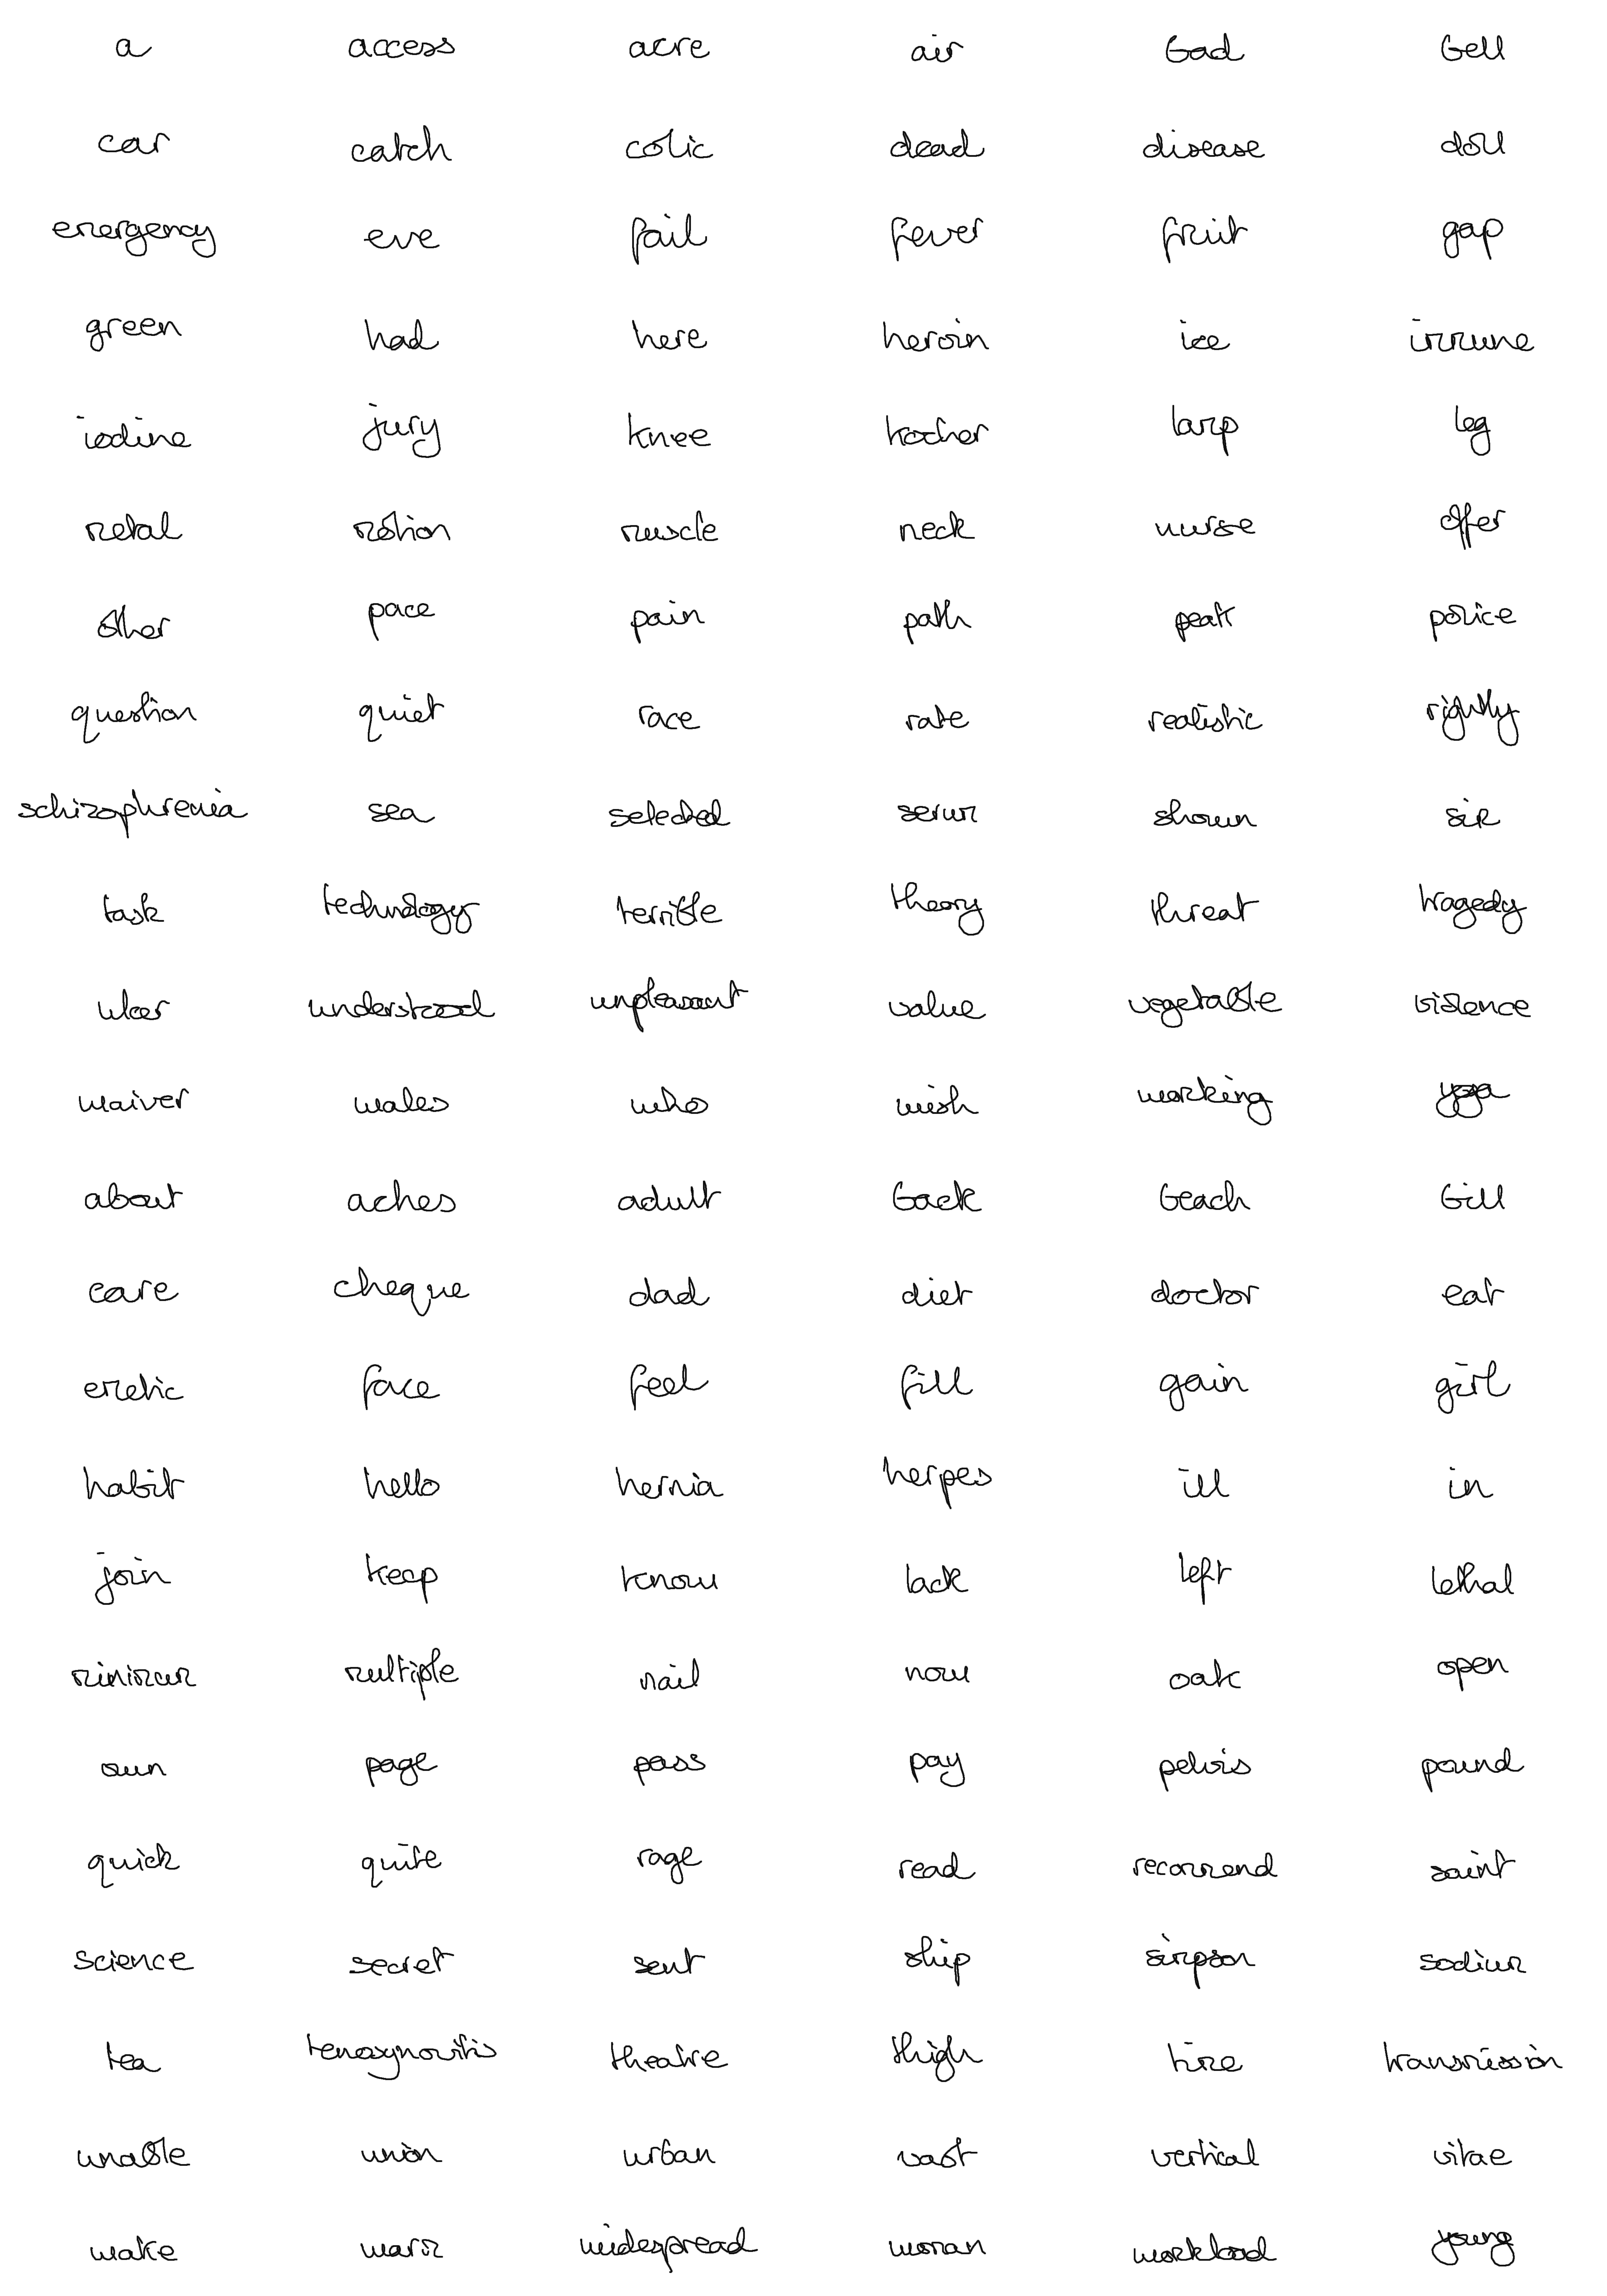 a access acre air bad bell
car catch colic dead disease doll
emergency eve fail fever fruit gap
green had here heroin ice immune
iodine jury knee kocher lamp leg
metal motion muscle neck nurse offer
other pace pain path peak police
question quiet race rate realistic rightly
schizophrenia sea selected serum shown
task technology terrible theory threat tragedy
ulcer understood unpleasant value vegetable violence
waiver wales who wish working yoga
about aches adult back beach bill
care cheque dad diet doctor eat
emetic face feel fill gain girl
habit hello hernia herpes ill in
join keep know lack left lethal
minimum multiple nail now oak open
own page pass pay pelvis pound
quick quite rage read recommend saint
science secret sent ship simpson sodium
tea tenosynovitis theatre thigh time transmission
unable union urban vast vertical vitae
wake warm widespread woman workload young